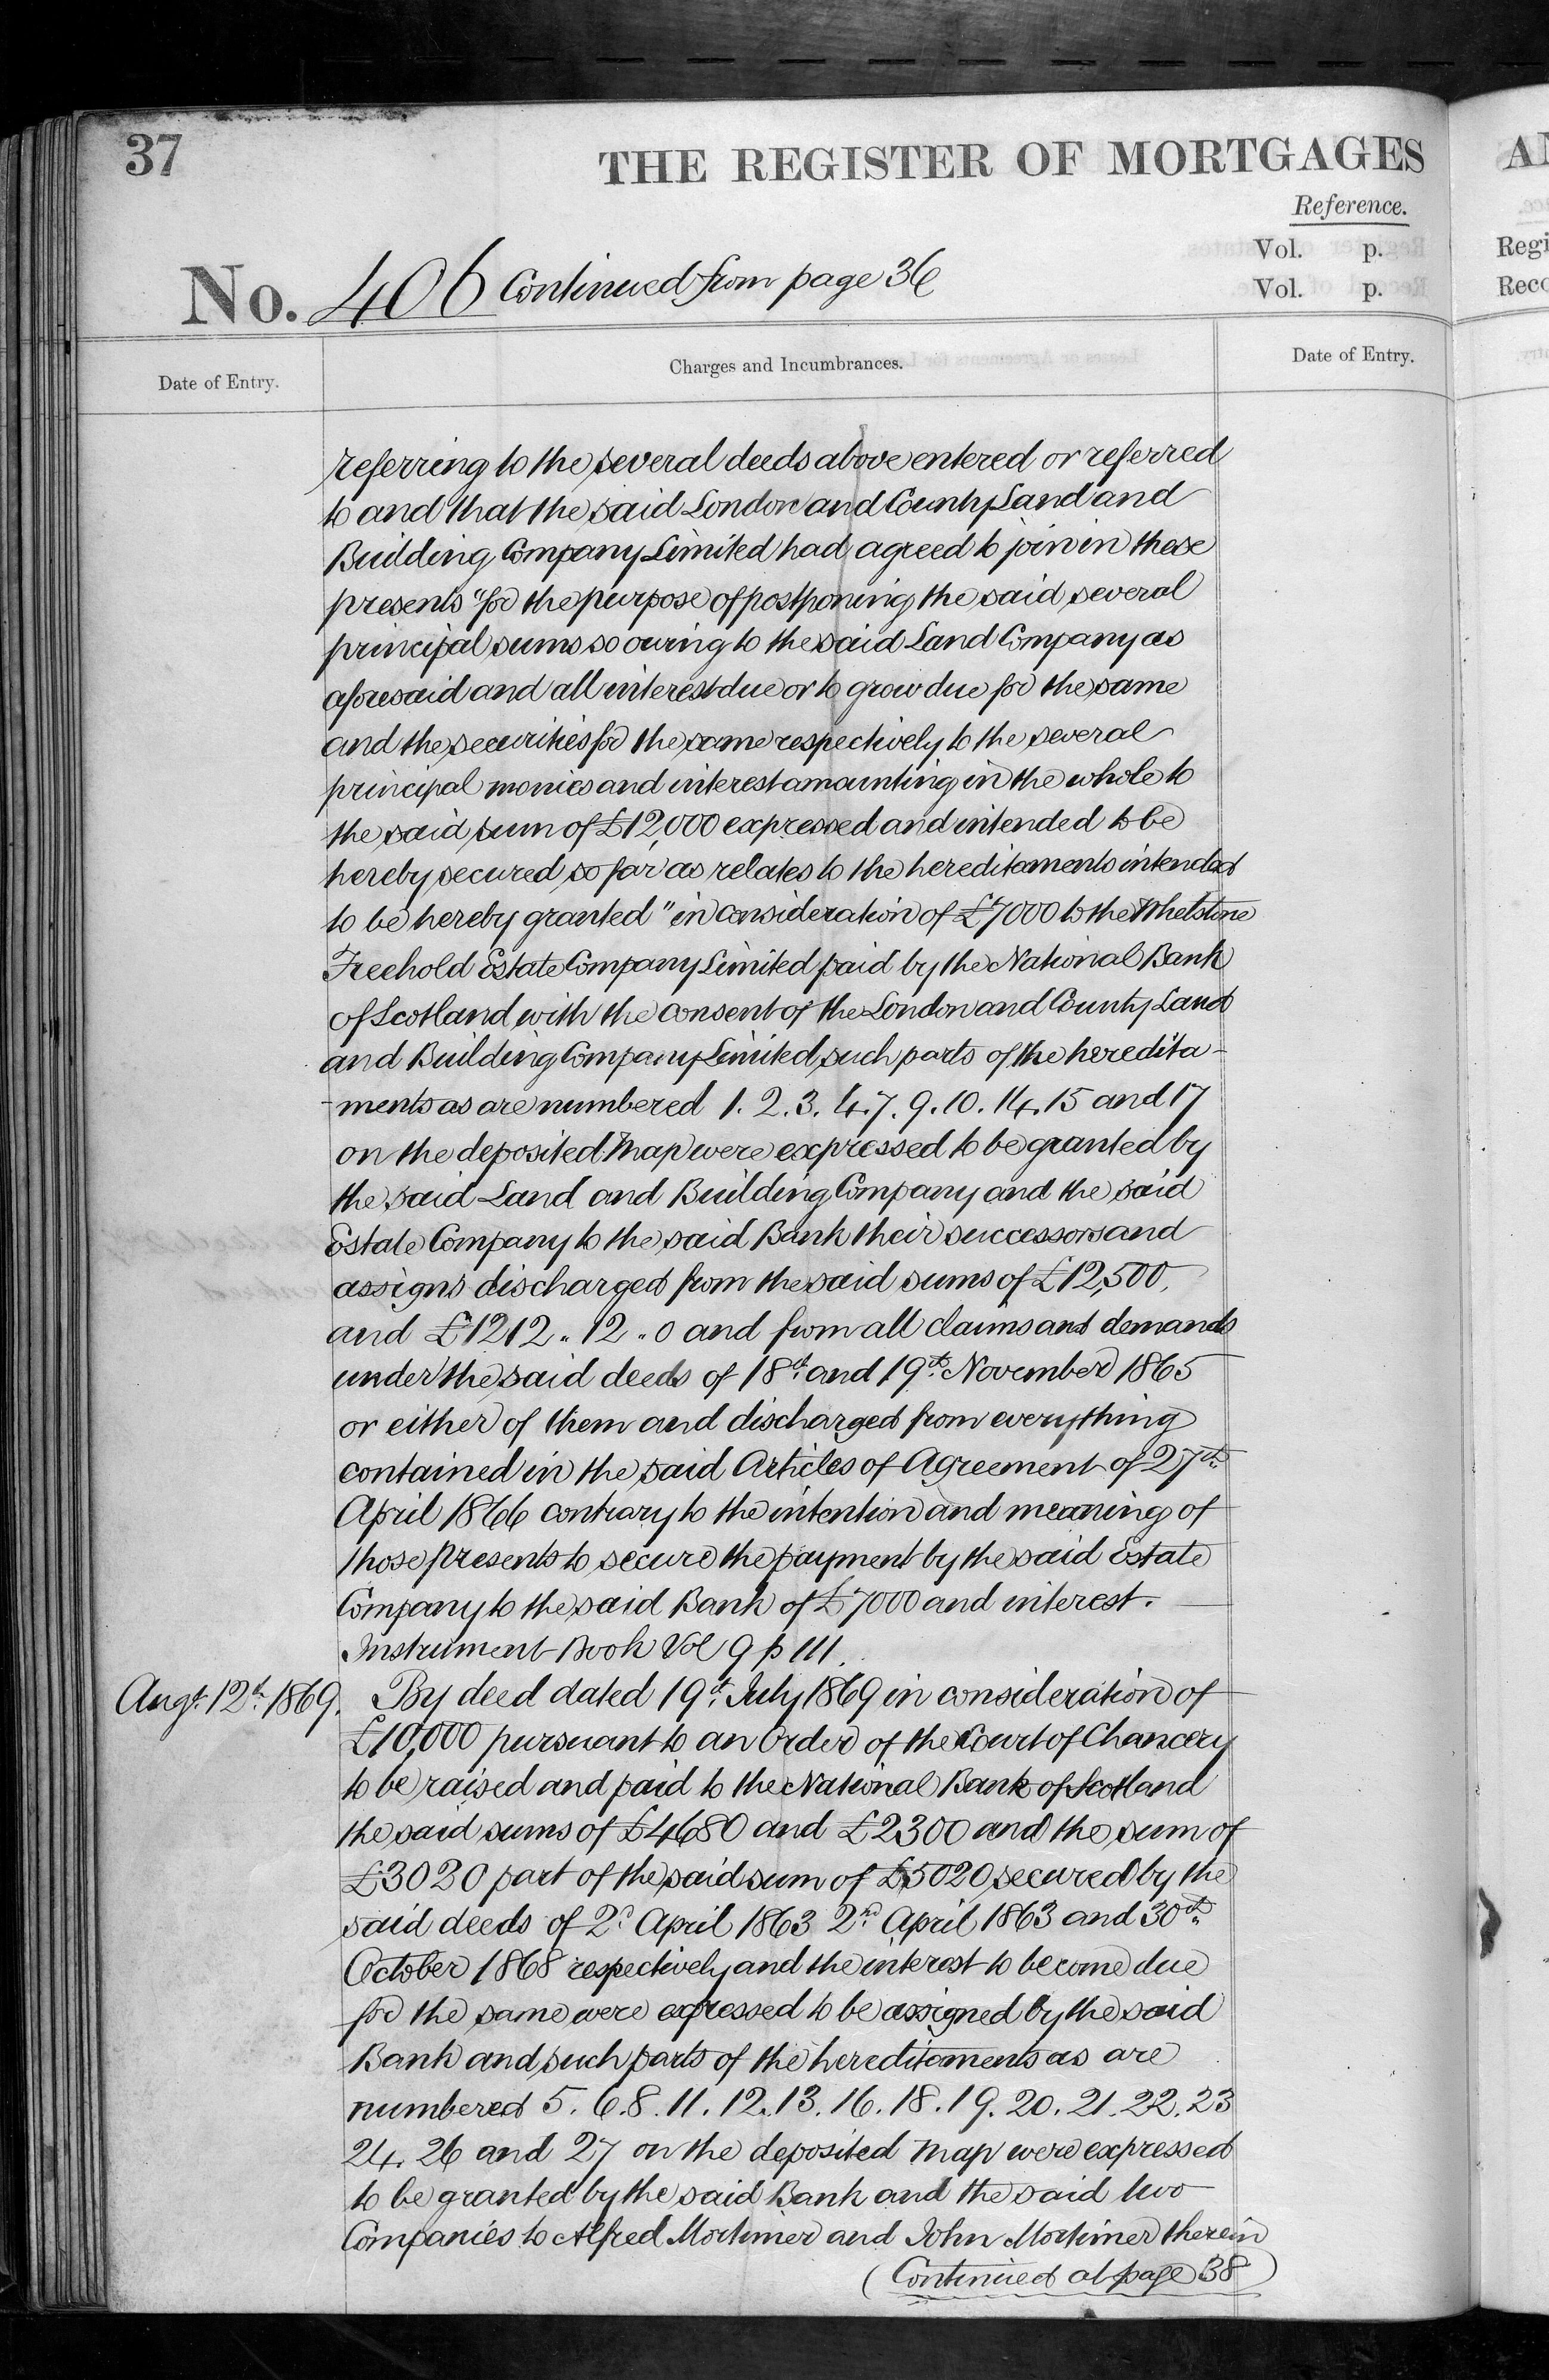 37
THE REGISTER OF MORTGAGES
Reference.
Vol. p.
Vol. p.
No. 406 Continued from page 36
Date of Entry.
Charges and Incumbrances.
Date of Entry.
referring to the several deeds above entered or referred
to and that the said London and County Land and
Building Company Limited had agreed to join in these
presents "for the purpose of postponing the said several
principal sums so owing to the said Land Company as
aforesaid and all interest due or to grow due for the same
and the securities for the same respectively to the several
principal monies and interest amounting in the whole to
the said sum of £12,000 expressed and intended to be
hereby secured so far as relates to the hereditaments intended
to be hereby granted" in consideration of £7000 to the Whetstone
Freehold Estate Company Limited paid by the National Bank
of Scotland with the consent of the London and County Land
and Building Company Limited such parts of the heredita-
-ments as are numbered 1. 2. 3. 4. 7. 9. 10. 14. 15 and 17
on the deposited Map were expressed to be granted by
the said Land and Building Company and the said
Estate Company to the said Bank their successors and
assigns discharged from the said sums of £12,500,
and £1212 .. 12 .. 0 and from all claims and demands
under the said deeds of 18th and 19th November 1865
or either of them and discharged from everything
contained in the said Articles of Agreement of 27th
April 1866 contrary to the intention and meaning of
those presents to secure the payment by the said Estate
Company to the said Bank of £7000 and interest.
Instrument Book Vol 9 p 111.
Augt. 12th 1869. By deed dated 19th July 1869 in consideration of
£10,000 pursuant to an Order of the Court of Chancery
to be raised and paid to the National Bank of Scotland
the said sums of £4680 and £2300 and the sum of
£3020 part of the said sum of £5020 secured by the
said deeds of 2d April 1863 2nd April 1863 and 30th
October 1868 respectively and the interest to become due
for the same were expressed to be assigned by the said
Bank and such parts of the hereditaments as are
numbered 5. 6. 8. 11. 12. 13. 16. 18. 19. 20. 21. 22. 23
24. 26 and 27 on the deposited Map were expressed
to be granted by the said Bank and the said two
Companies to Alfred Mortimer and John Mortimer therein
(Continued at page 38)
AN
Regi
Reco